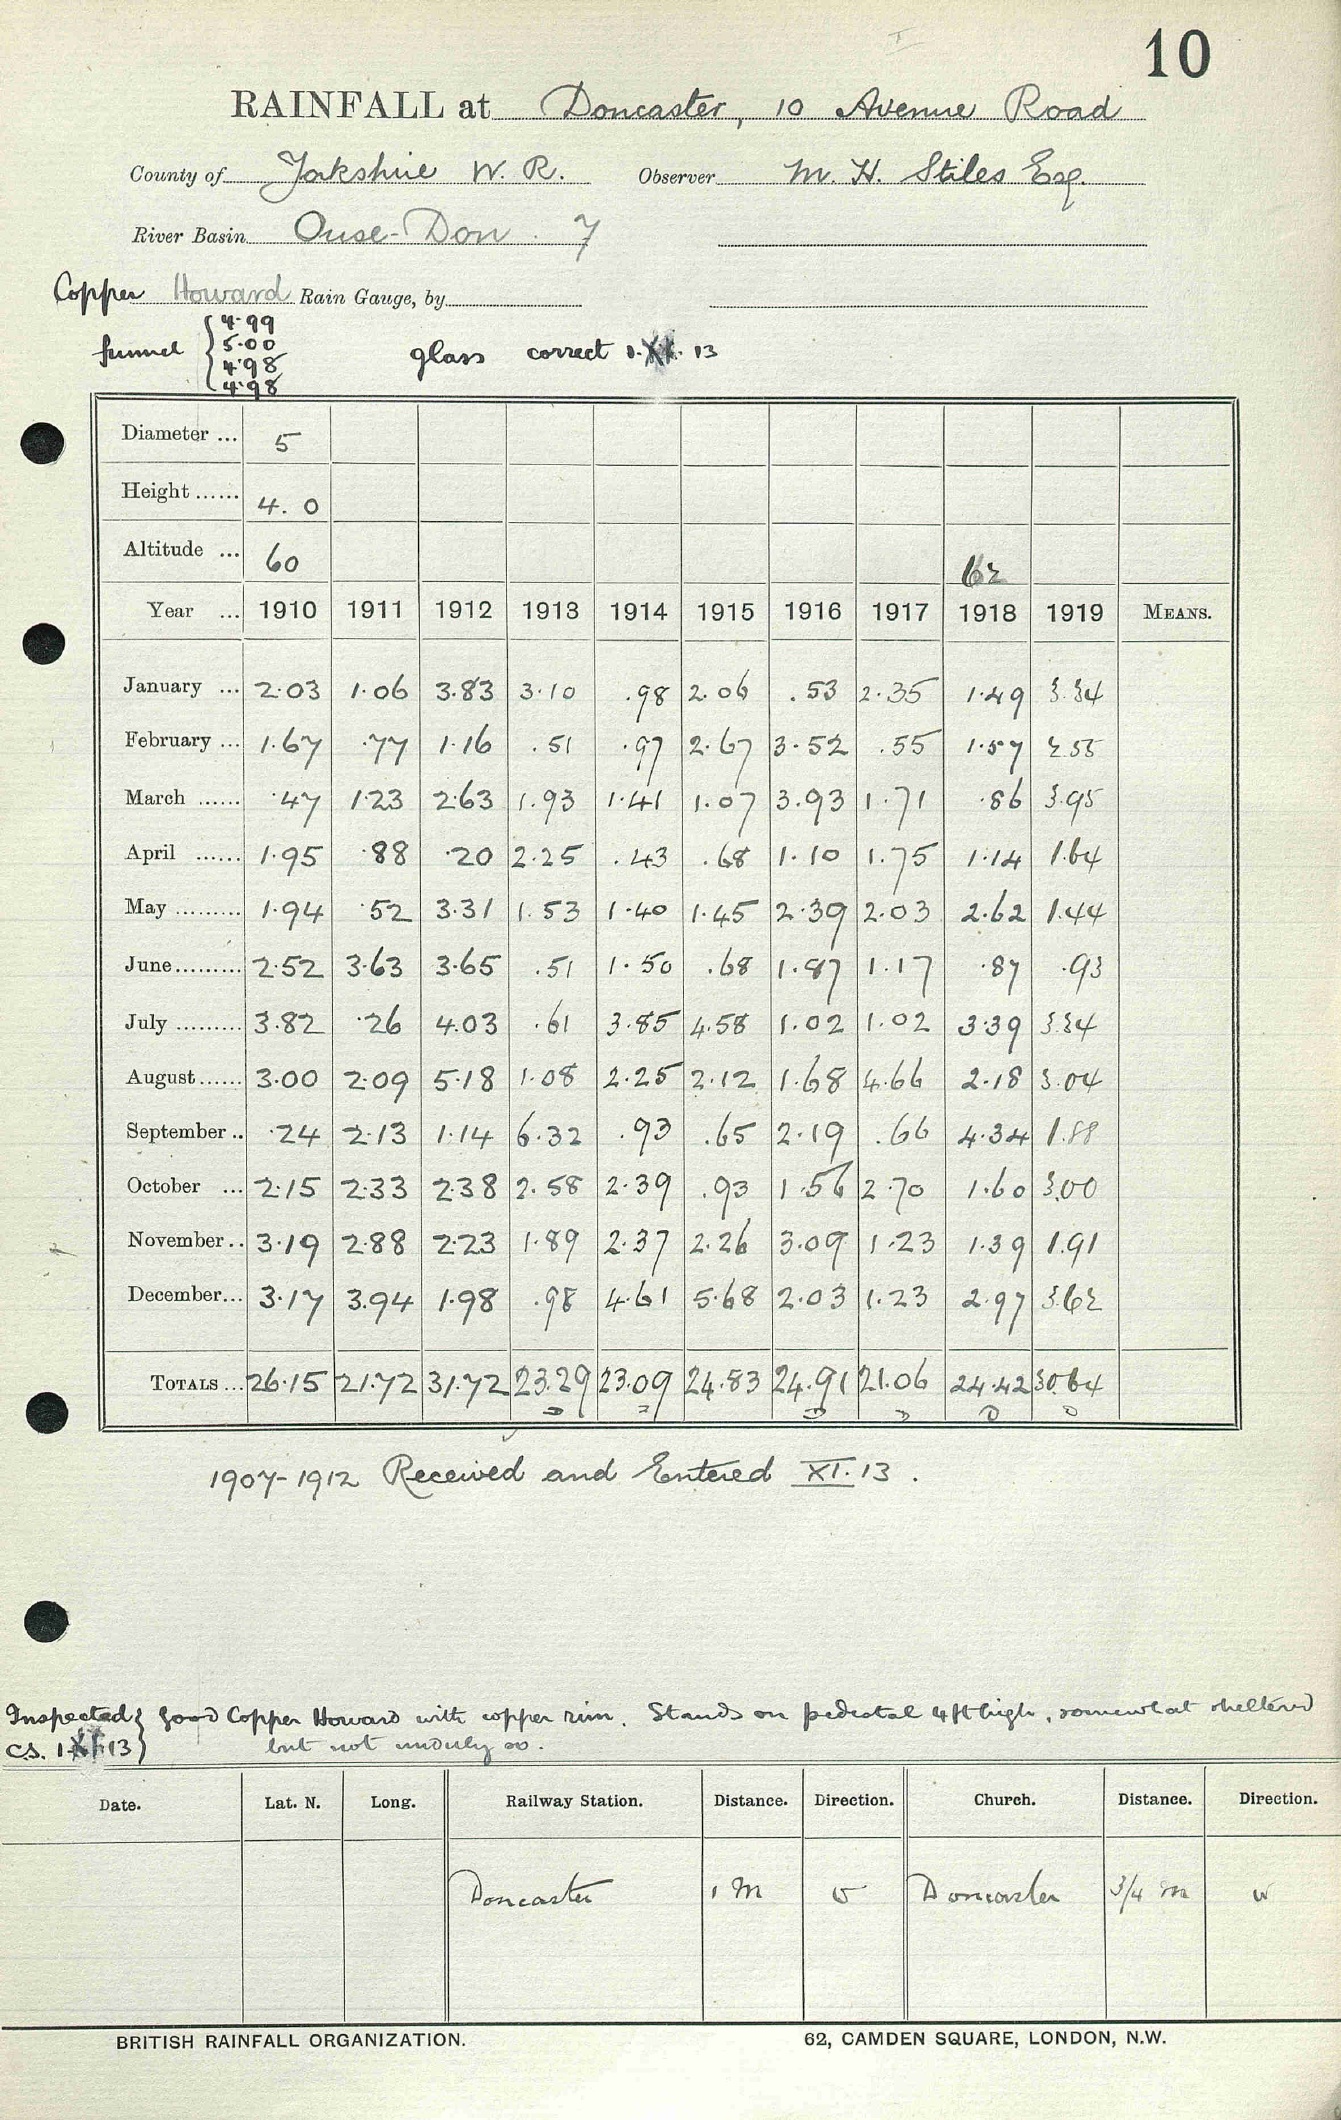 10
RAINFALL at Doncaster, 10 Avenue Road
County of Yorkshire W. R. Observer M. H. Stiles Esq.
River Basin Ouse-Don . 7
Copper Howard Rain Gauge, by
funnel { 4.99 5.00 4.98 4.98 glass correct 1. XI. 13
Diameter ... 5
Height ...... 4. 0
Altitude ... 60 62
Year ... 1910 1911 1912 1913 1914 1915 1916 1917 1918 1919 MEANS.
January ... 2.03 1.06 3.83 3.10 .98 2.06 .53 2.35 1.49 3.34
February ... 1.67 .77 1.16 .51 .97 2.67 3.52 .55 1.57 2.55
March ...... .47 1.23 2.63 1.93 1.41 1.07 3.93 1.71 .86 3.95
April ...... 1.95 .88 .20 2.25 .43 .68 1.10 1.75 1.14 1.64
May ......... 1.94 .52 3.31 1.53 1.40 1.45 2.39 2.03 2.62 1.44
June ......... 2.52 3.63 3.65 .51 1.50 .68 1.87 1.17 .87 .93
July ......... 3.82 .26 4.03 .61 3.85 4.58 1.02 1.02 3.39 3.34
August ...... 3.00 2.09 5.18 1.08 2.25 2.12 1.68 4.66 2.18 3.04
September .. .24 2.13 1.14 6.32 .93 .65 2.19 .66 4.34 1.88
October ... 2.15 2.33 2.38 2.58 2.39 .93 1.56 2.70 1.60 3.00
November .. 3.19 2.88 2.23 1.89 2.37 2.26 3.09 1.23 1.39 1.91
December ... 3.17 3.94 1.98 .98 4.61 5.68 2.03 1.23 2.97 3.62
TOTALS ... 26.15 21.72 31.72 23.29 23.09 24.83 24.91 21.06 24.42 30.64
1907-1912 Received and Entered XI. 13 .
Inspected } Good Copper Howard with copper rim. Stands on pedestal 4ft high, somewhat sheltered
C.S. 1 XI 13 } but not unduly so.
Date. Lat. N. Long. Railway Station. Distance. Direction. Church. Distance. Direction.
Doncaster 1 m W Doncaster 3/4 m W
BRITISH RAINFALL ORGANIZATION. 62, CAMDEN SQUARE, LONDON, N.W.